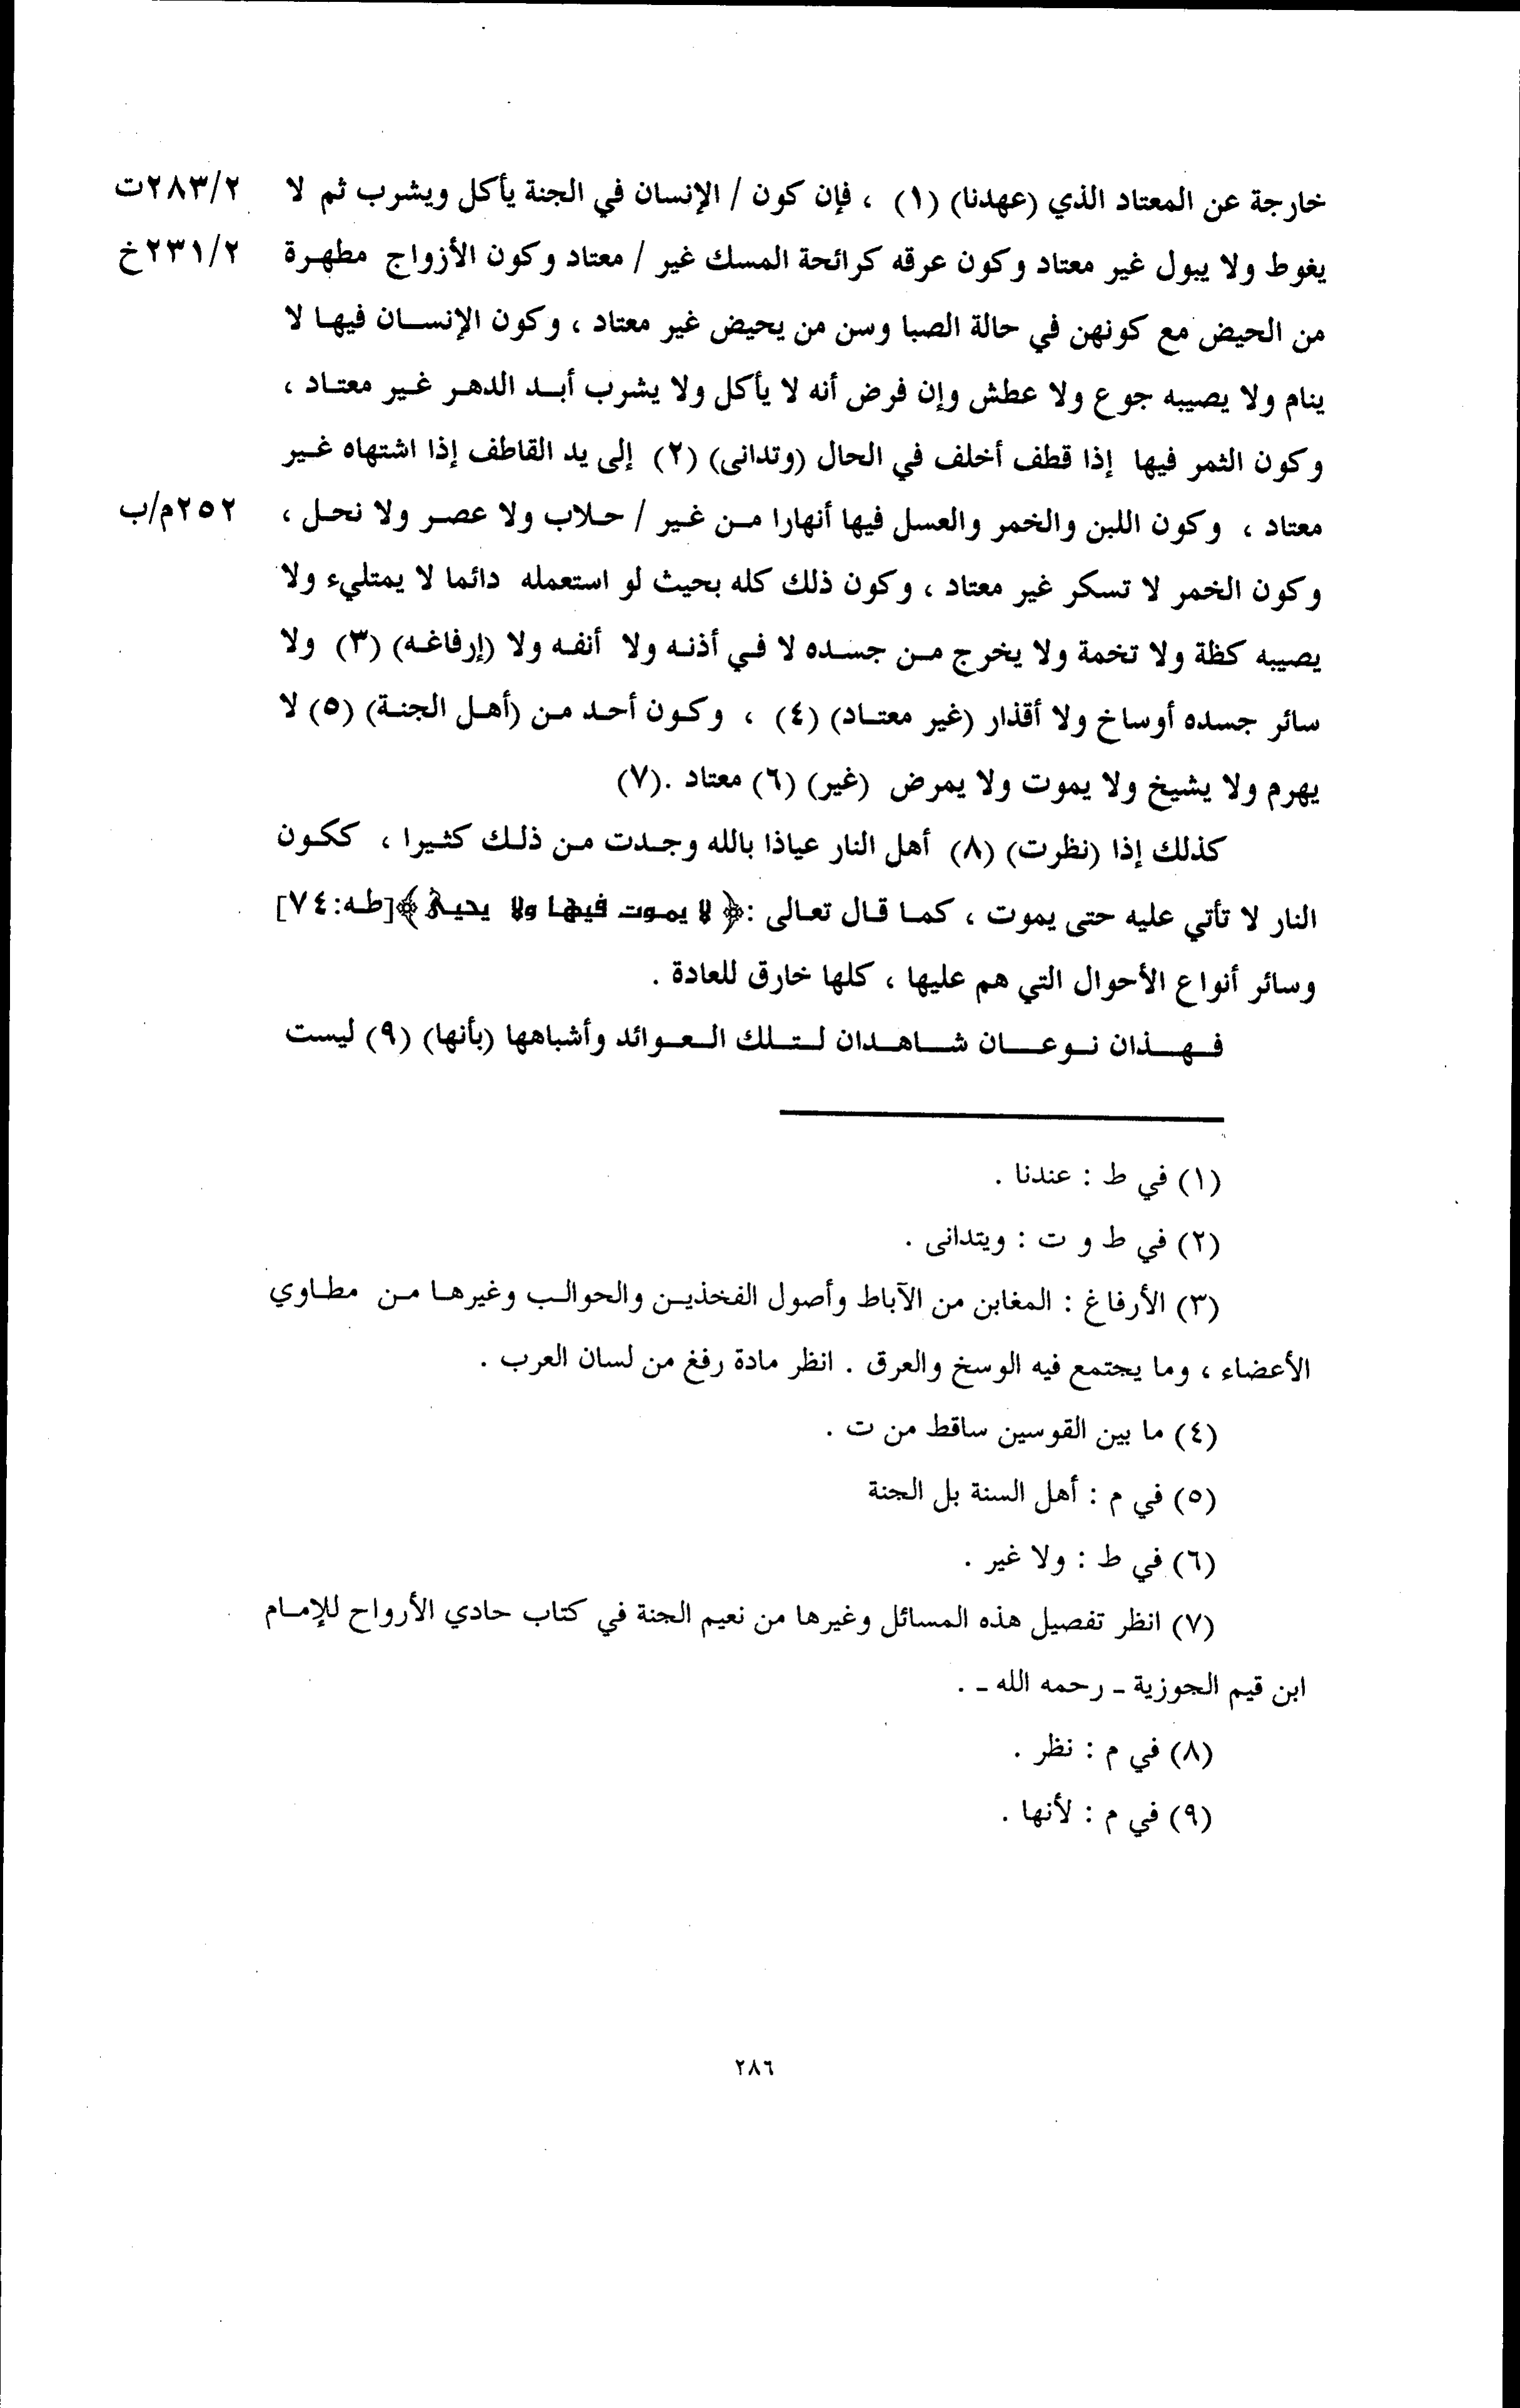 خارجة عن المعتاد الذي (عهدنا) (١) ، فإن كون / الإنسان في الجنة يأكل ويشرب ثم لا ٢٨٣/٢ت
يغوط ولا يبول غير معتاد وكون عرقه كرائحة المسك غير / معتاد وكون الأزواج مطهرة ٢٣١/٢خ
من الحيض مع كونهن في حالة الصبا وسن من يحيض غير معتاد ، وكون الإنسان فيها لا
ينام ولا يصيبه جوع ولا عطش وإن فرض أنه لا يأكل ولا يشرب أبد الدهر غير معتاد ،
وكون الثمر فيها إذا قطف أخلف في الحال (وتدانى) (٢) إلى يد القاطف إذا اشتهاه غير
معتاد ، وكون اللبن والخمر والعسل فيها أنهارا من غير / حلاب ولا عصر ولا نحل ، ٢٥٢م/ب
وكون الخمر لا تسكر غير معتاد ، وكون ذلك كله بحيث لو استعمله دائما لا يمتليء ولا
يصيبه كظة ولا تخمة ولا يخرج من جسده لا في أذنه ولا أنفه ولا (إرفاغه) (٣) ولا
سائر جسده أوساخ ولا أقذار (غير معتاد) (٤) ، وكون أحد من (أهل الجنة) (٥) لا
يهرم ولا يشيخ ولا يموت ولا يمرض (غير) (٦) معتاد .(٧)
كذلك إذا (نظرت) (٨) أهل النار عياذا بالله وجدت من ذلك كثيرا ، ككون
النار لا تأتي عليه حتى يموت ، كما قال تعالى :﴿ لا يموت فيها ولا يحيى ﴾[طه:٧٤]
وسائر أنواع الأحوال التي هم عليها ، كلها خارق للعادة .
فهذان نوعان شاهدان لتلك العوائد وأشباهها (بأنها) (٩) ليست
(١) في ط : عندنا .
(٢) في ط و ت : ويتدانى .
(٣) الأرفاغ : المغابن من الآباط وأصول الفخذين والحوالب وغيرها من مطاوي
الأعضاء ، وما يجتمع فيه الوسخ والعرق . انظر مادة رفغ من لسان العرب .
(٤) ما بين القوسين ساقط من ت .
(٥) في م : أهل السنة بل الجنة
(٦) في ط : ولا غير .
(٧) انظر تفصيل هذه المسائل وغيرها من نعيم الجنة في كتاب حادي الأرواح للإمام
ابن قيم الجوزية ـ رحمه الله ـ .
(٨) في م : نظر .
(٩) في م : لأنها .
٢٨٦